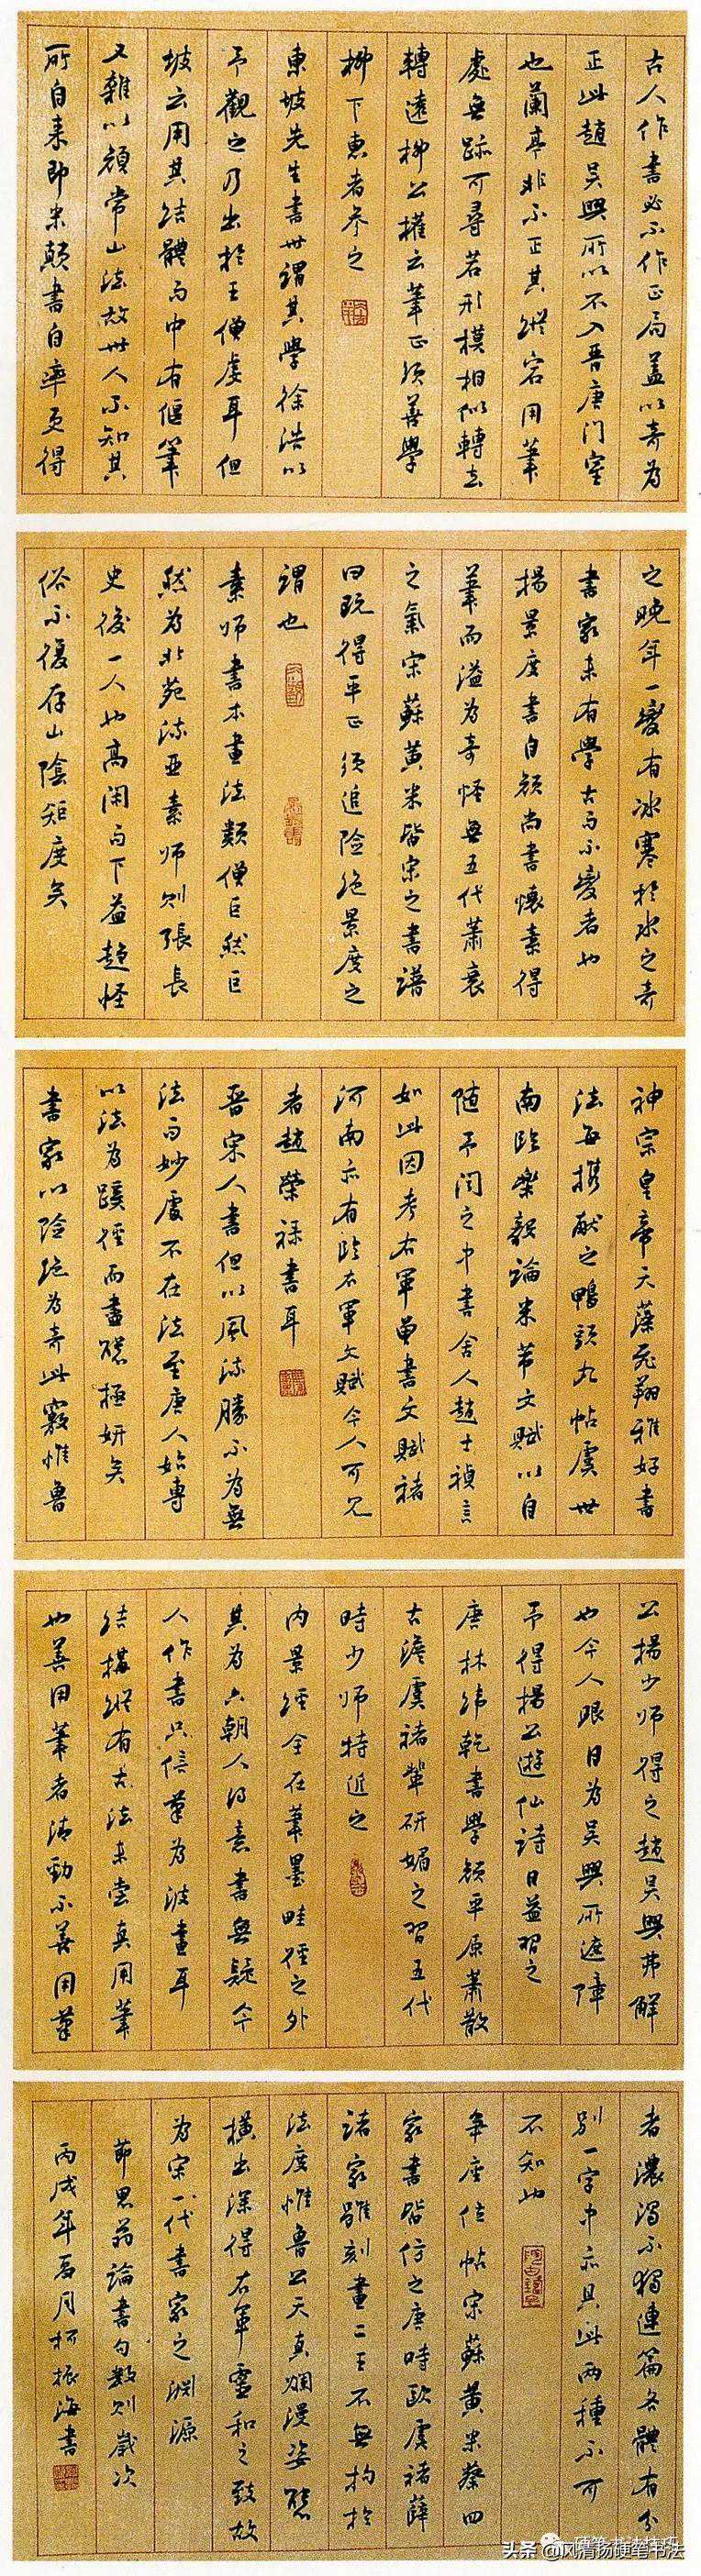 古人作書必不作正局蓋以奇為
正此趙吳興所以不入晉唐門室
也蘭亭非不正其縱宕用筆
處無跡可尋若形模相似轉去
轉遠柳公權云筆正須善學
柳下惠者參之
東坡先生書世謂其學徐浩以
予觀之乃出於王僧虔耳但
坡云用其結體而中有偃筆
又雜以顏常山法故世人不知其
所自來即米顛書自率更得
之晚年一變有冰寒於水之奇
書家未有學古而不變者也
楊景度書自顏尚書懷素得
筆而溢為奇怪無五代蕭衰
之氣宋蘇黃米皆宋之書譜
曰既得平正須追險絕景度之
謂也
素師書本畫法類僧巨然巨
然為北苑流亞素師則張長
史後一人也高閑而下益趨怪
俗不復存山陰矩度矣
神宗皇帝天藻飛翔雅好書
法每攜獻之鴨頭丸帖虞世
南臨樂毅論米芾文賦以自
隨予聞之中書舍人趙士禎言
如此因考右軍曾書文賦褚
河南亦有臨右軍文賦今人可見
者趙榮祿書耳
晉宋人書但以風流勝不為無
法而妙處不在法至唐人始專
以法為蹊徑而盡態極妍矣
書家以險絕為奇此竅惟魯
公楊少師得之趙吳興弗解
也今人眼目為吳興所遮障
予得楊公遊仙詩日益習之
唐林緯乾書學顏平原蕭散
古澹虞褚輩妍媚之習五代
時少師特近之
內景經全在筆墨畦徑之外
其為六朝人得意書無疑今
人作書只信筆為波畫耳
結構縱有古法未嘗真用筆
也善用筆者清勁不善用筆
者濃濁不獨連篇各體有分
別一字中亦具此兩種不可
不知也
爭座位帖宋蘇黃米蔡四
家書皆仿之唐時歐虞褚薛
諸家雖刻畫二王不無拘於
法度惟魯公天真爛漫姿態
橫出深得右軍靈和之致故
為宋一代書家之淵源
節思翁論書句數則歲次
丙戌年夏月柯振海書
头条 @风清扬硬笔书法